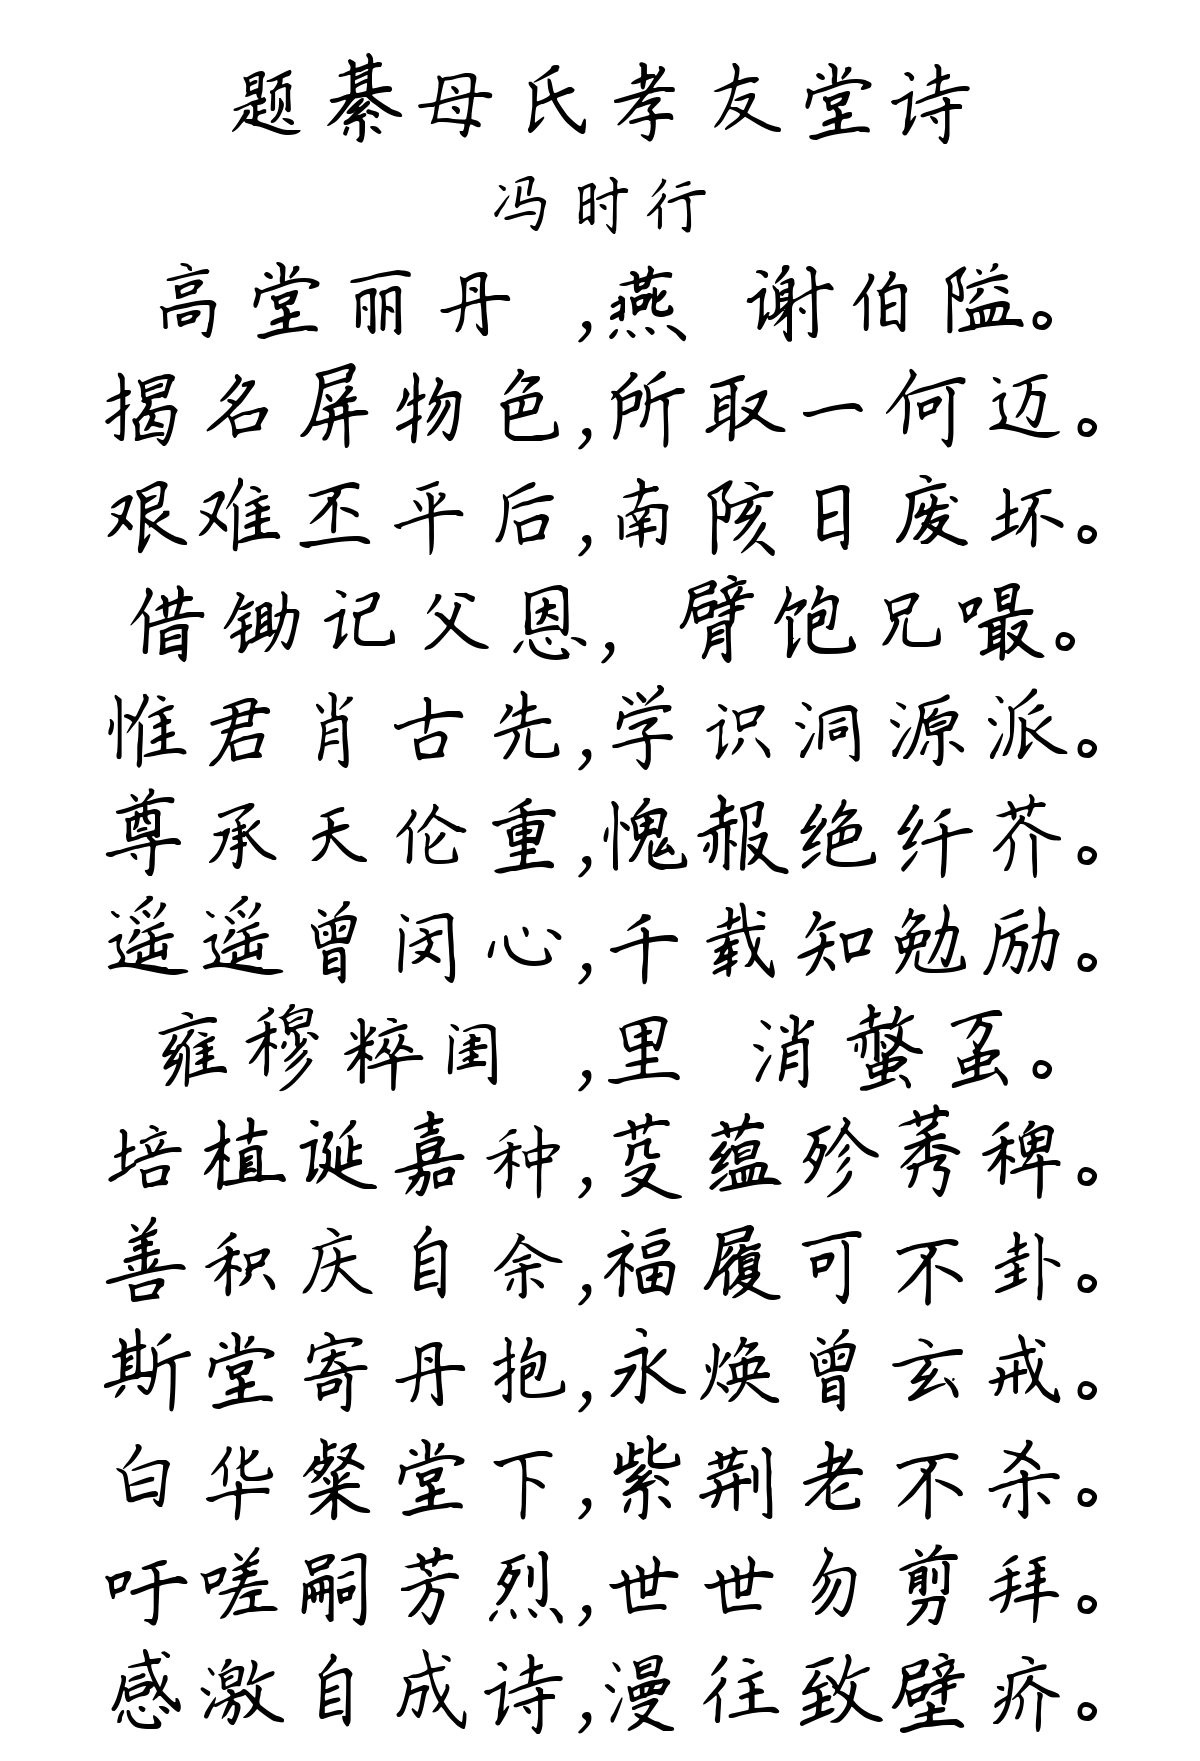 题綦母氏孝友堂诗
冯时行
高堂丽丹 ,燕 谢伯隘。
揭名屏物色,所取一何迈。
艰难丕平后,南陔日废坏。
借锄记父恩, 臂饱兄嘬。
惟君肖古先,学识洞源派。
尊承天伦重,愧赧绝纤芥。
遥遥曾闵心,千载知勉励。
雍穆粹闺 ,里 消螫虿。
培植诞嘉种,芟蕴殄莠稗。
善积庆自余,福履可不卦。
斯堂寄丹抱,永焕曾玄戒。
白华粲堂下,紫荆老不杀。
吁嗟嗣芳烈,世世勿剪拜。
感激自成诗,漫往致壁疥。